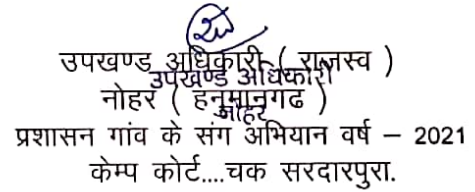 उपखण्ड अधिकारी ( राजस्व )
उपखण्ड अधिकारी
नोहर ( हनुमानगढ )
नोहर
प्रशासन गांव के संग अभियान वर्ष – 2021
केम्प कोर्ट....चक सरदारपुरा.